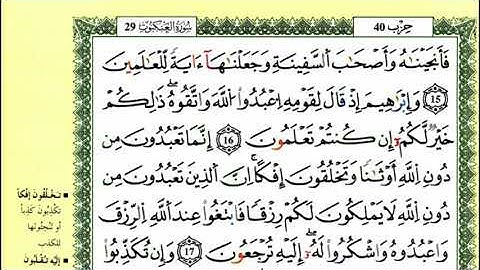 حِزْب 40
سُورَةُ العَنكَبُوت 29
فَأَنجَيْنَٰهُ وَأَصْحَٰبَ اَ۬لسَّفِينَةِ وَجَعَلْنَٰهَا ءَايَةٗ لِّلْعَٰلَمِينَ
15 وَإِبْرَٰهِيمَ إِذْ قَالَ لِقَوْمِهِ اِ۟عْبُدُوا۟ اُ۬للَّهَ وَاتَّقُوهُۖ ذَٰلِكُمْ
خَيْرٞ لَّكُمُۥٓ إِن كُنتُمْ تَعْلَمُونَ 16 إِنَّمَا تَعْبُدُونَ مِن
دُونِ اِ۬للَّهِ أَوْثَٰناٗ وَتَخْلُقُونَ إِفْكاًۖ اِنَّ اَ۬لذِينَ تَعْبُدُونَ مِن
دُونِ اِ۬للَّهِ لَا يَمْلِكُونَ لَكُمْ رِزْقاٗ فَابْتَغُوا۟ عِندَ اَ۬للَّهِ اِ۬لرِّزْقَ
وَاعْبُدُوهُ وَاشْكُرُوا۟ لَهُۥٓ إِلَيْهِ تُرْجَعُونَ 17 وَإِن تُكَذِّبُوا۟
تَخْلُقُونَ إِفْكاً
تَكْذِبُونَ كَذِباً
أو تَنْحِتُونَها
للكذب
إِلَيْهِ تُقْلَبُونَ